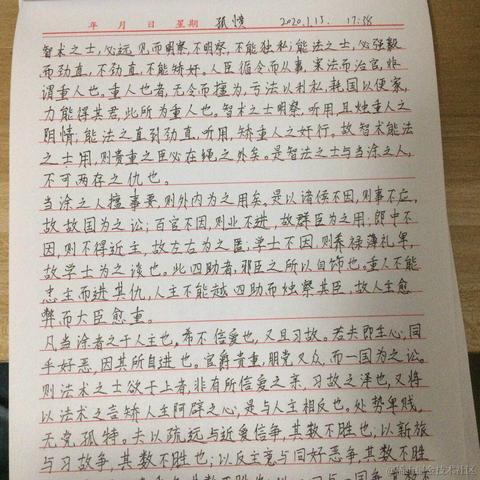 年 月 日 星期 孤愤 2020.1.15. 17:58
智术之士,必远见而明察,不明察,不能独私;能法之士,必强毅
而劲直,不劲直,不能矫奸。人臣循令而从事,案法而治官,非
谓重人也。重人也者,无令而擅为,亏法以利私,耗国以便家,
力能得其君,此所为重人也。智术之士明察,听用,且烛重人之
阴情;能法之直到劲直,听用,矫重人之奸行。故智术能法
之士用,则贵重之臣必在绳之外矣。是智法之士与当涂之人,
不可两存之仇也。
当涂之人擅事要,则外内为之用矣。是以诸侯不因,则事不应,
故敌国为之讼;百官不因,则业不进,故群臣为之用;郎中不
因,则不得近主,故左右为之匿;学士不因,则养禄薄礼卑,
故学士为之谈也。此四助者,邪臣之所以自饰也。重人不能
忠主而进其仇,人主不能越四助而烛察其臣,故人主愈
弊而大臣愈重。
凡当涂者之于人主也,希不信爱也,又且习故。若夫即主心,同
乎好恶,因其所自进也。官爵贵重,朋党又众,而一国为之讼。
则法术之士欲干上者,非有所信爱之亲,习故之泽也,又将
以法术之言矫人主阿辟之心,是与人主相反也。处势卑贱,
无党孤特。夫以疏远与近爱信争,其数不胜也;以新旅
与习故争,其数不胜也;以反主意与同好恶争,其数不胜